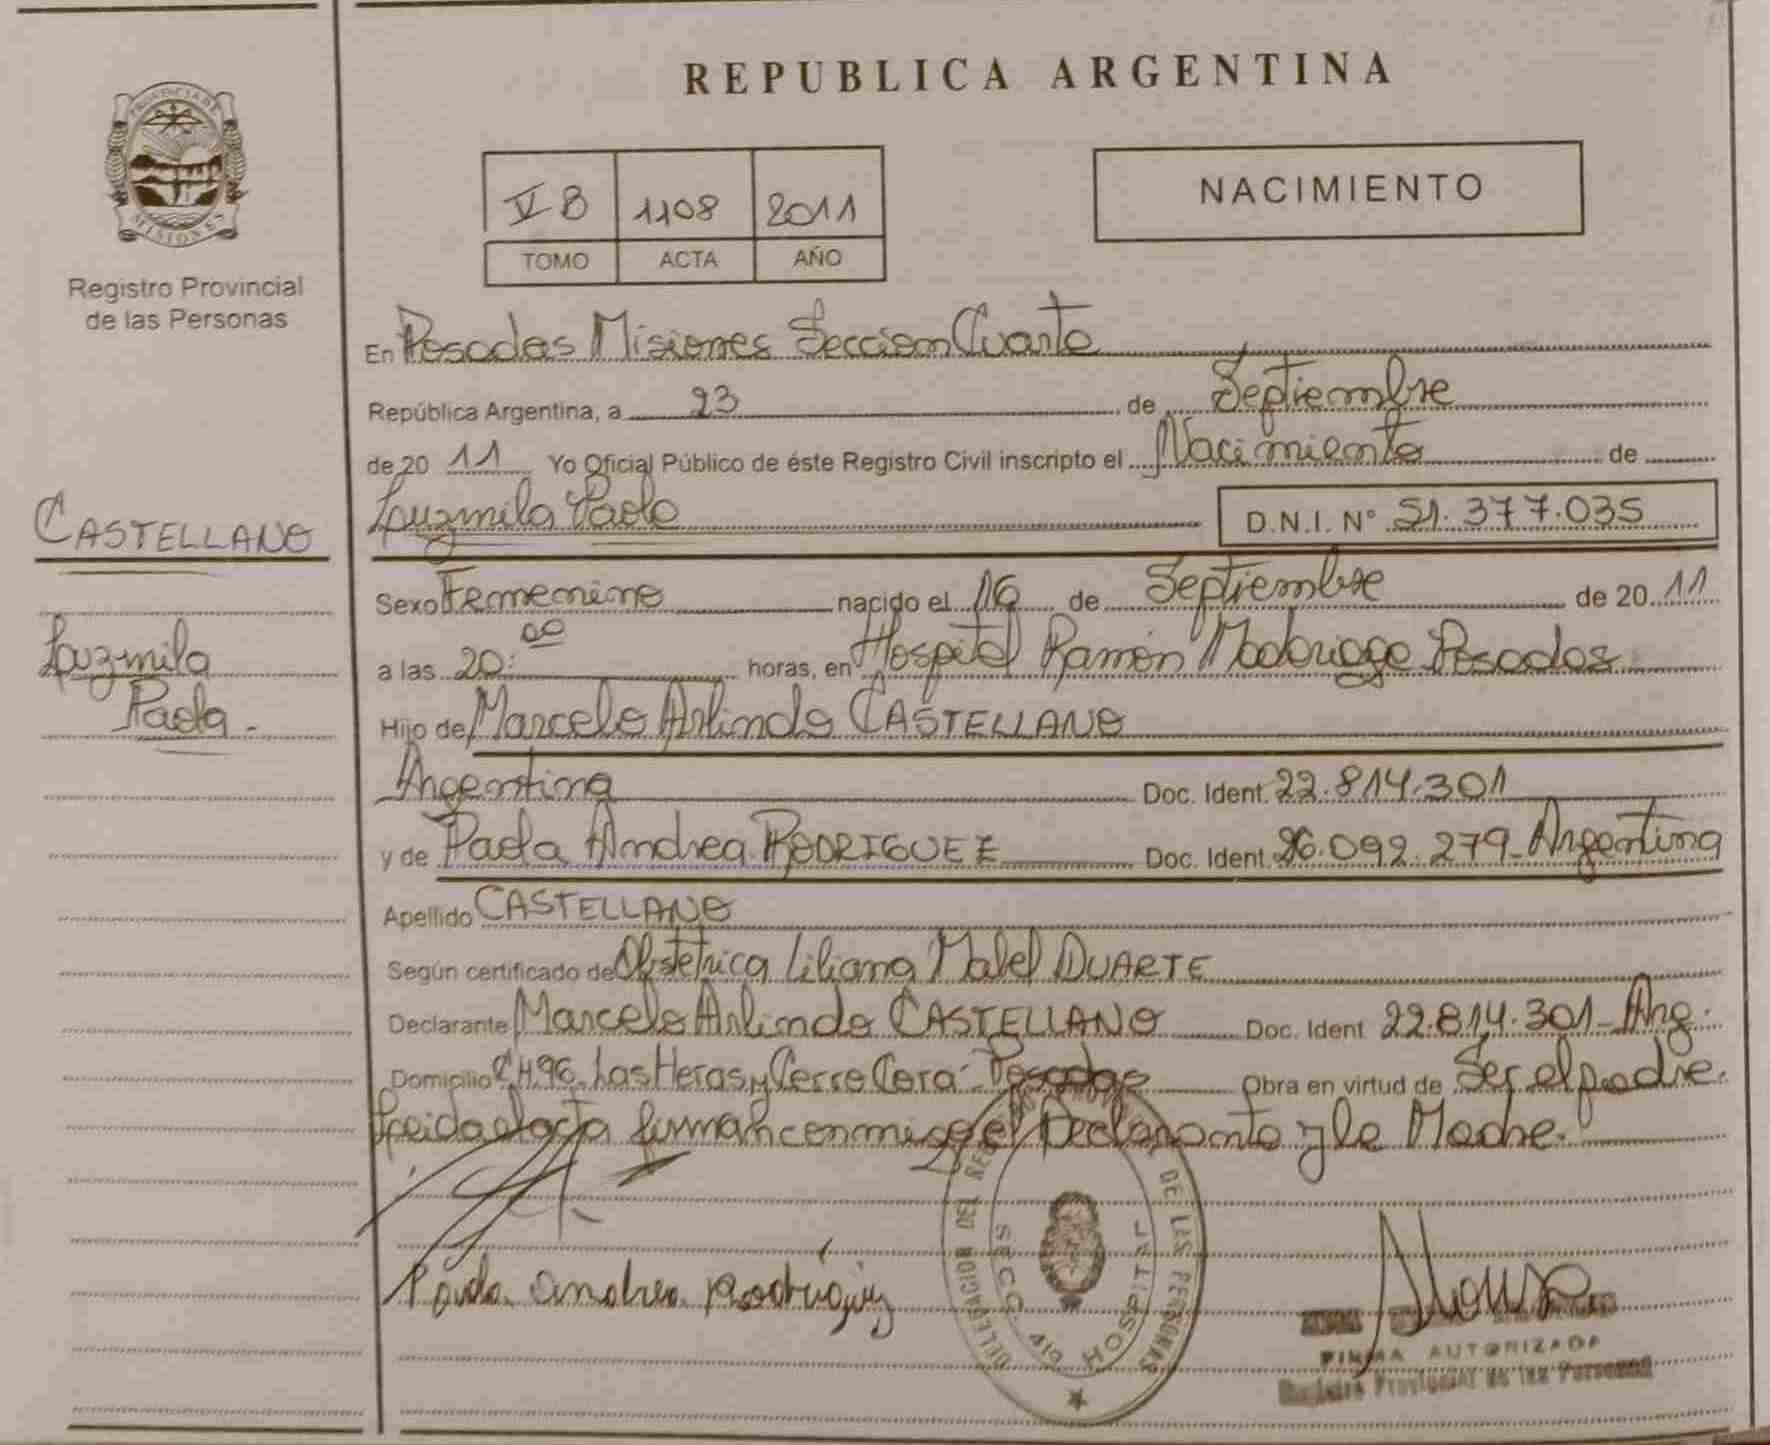 REPUBLICA ARGENTINA
PROVINCIA DE
MISIONES
Registro Provincial
de las Personas
V B 1108 2011
TOMO ACTA AÑO
NACIMIENTO
En Posadas Misiones Seccion Cuarta
República Argentina, a 23 de Septiembre
de 2011 Yo Oficial Público de éste Registro Civil inscripto el Nacimiento de
CASTELLANO
Luzmila Paola D.N.I. N° 51.377.035
Sexo Femenino nacido el 16 de Septiembre de 2011
Luzmila
Paola.
a las 20:00 horas, en Hospital Ramón Madariaga Posadas
Hijo de Marcelo Arlindo CASTELLANO
Argentina Doc. Ident. 22.814.301
y de Paola Andrea RODRIGUEZ Doc. Ident. 26.092.279_Argentina
Apellido CASTELLANO
Según certificado de Obstetrica Liliana Mabel DUARTE
Declarante Marcelo Arlindo CASTELLANO Doc. Ident 22.814.301_Arg.
Domicilio CH 96. Las Heras y Cerro Cora- Posadas Obra en virtud de Ser el padre.
Leida el acta firman conmigo el Declarante y la Madre.
Paola andrea Rodriguez
DELEGACION DEL REG DE LAS PERSONAS
SECC. 4ta HOSPITAL
FIRMA AUTORIZADA
Registro Provincial de las Personas